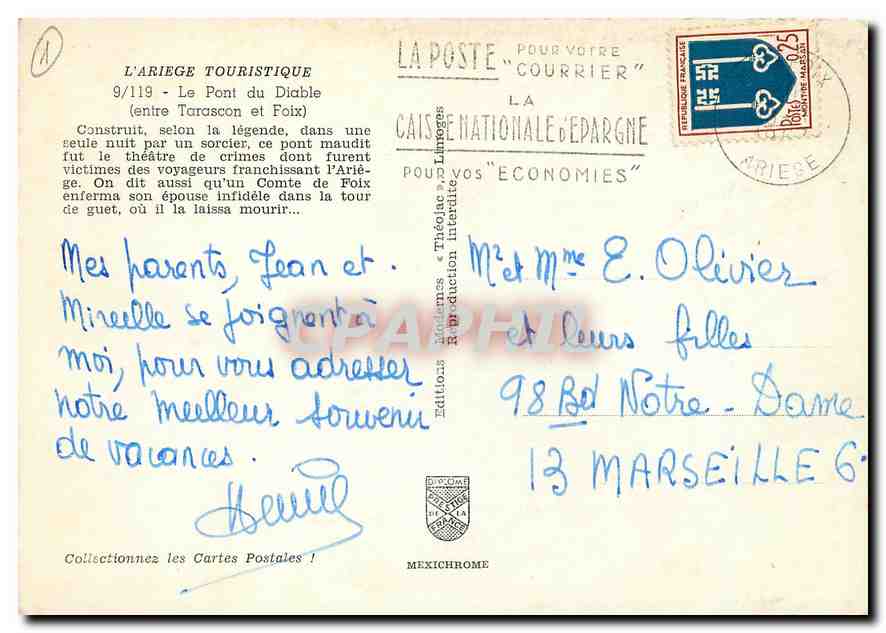 1
L'ARIEGE TOURISTIQUE
9/119 - Le Pont du Diable
(entre Tarascon et Foix)
Construit, selon la légende, dans une
seule nuit par un sorcier, ce pont maudit
fut le théâtre de crimes dont furent
victimes des voyageurs franchissant l'Ariè-
ge. On dit aussi qu'un Comte de Foix
enferma son épouse infidèle dans la tour
de guet, où il la laissa mourir...
Mes parents, Jean et
Mireille se joignent à
moi, pour vous adresser
notre meilleur souvenir
de vacances.
Collectionnez les Cartes Postales !
Editions Modernes « Théojac », Limoges
Reproduction interdite
DIPLOME
PRESTIGE
DE LA
FRANCE
MEXICHROME
LA POSTE POUR VOTRE
"COURRIER"
LA
CAISSE NATIONALE d'EPARGNE
POUR VOS "ECONOMIES"
REPUBLIQUE FRANÇAISE
0,25
POSTES
MONT-DE-MARSAN
ARIEGE
Mr et Mme E. Olivier
et leurs filles
98 Bd Notre-Dame
13 MARSEILLE 6
CPAPHIL